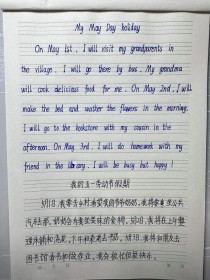 My May Day holiday
On May 1st, I will visit my grandparents in
the village. I will go there by bus. My grandma
will cook delicious food for me. On May 2nd, I will
make the bed and water the flowers in the morning.
I will go to the bookstore with my cousin in the
afternoon. On May 3rd. I will do homework with my
friend in the library. I will be busy but happy!
我的五一劳动节假期
5月1日,我将去乡村看望我的爷爷奶奶。我将乘坐公共
汽车去那。奶奶会为我做美味的食物。5月2日,我将在上午整
理床铺和浇花,下午和表弟去书店。5月3日,我将和朋友去
图书馆一起做作业。我会很忙但很快乐。